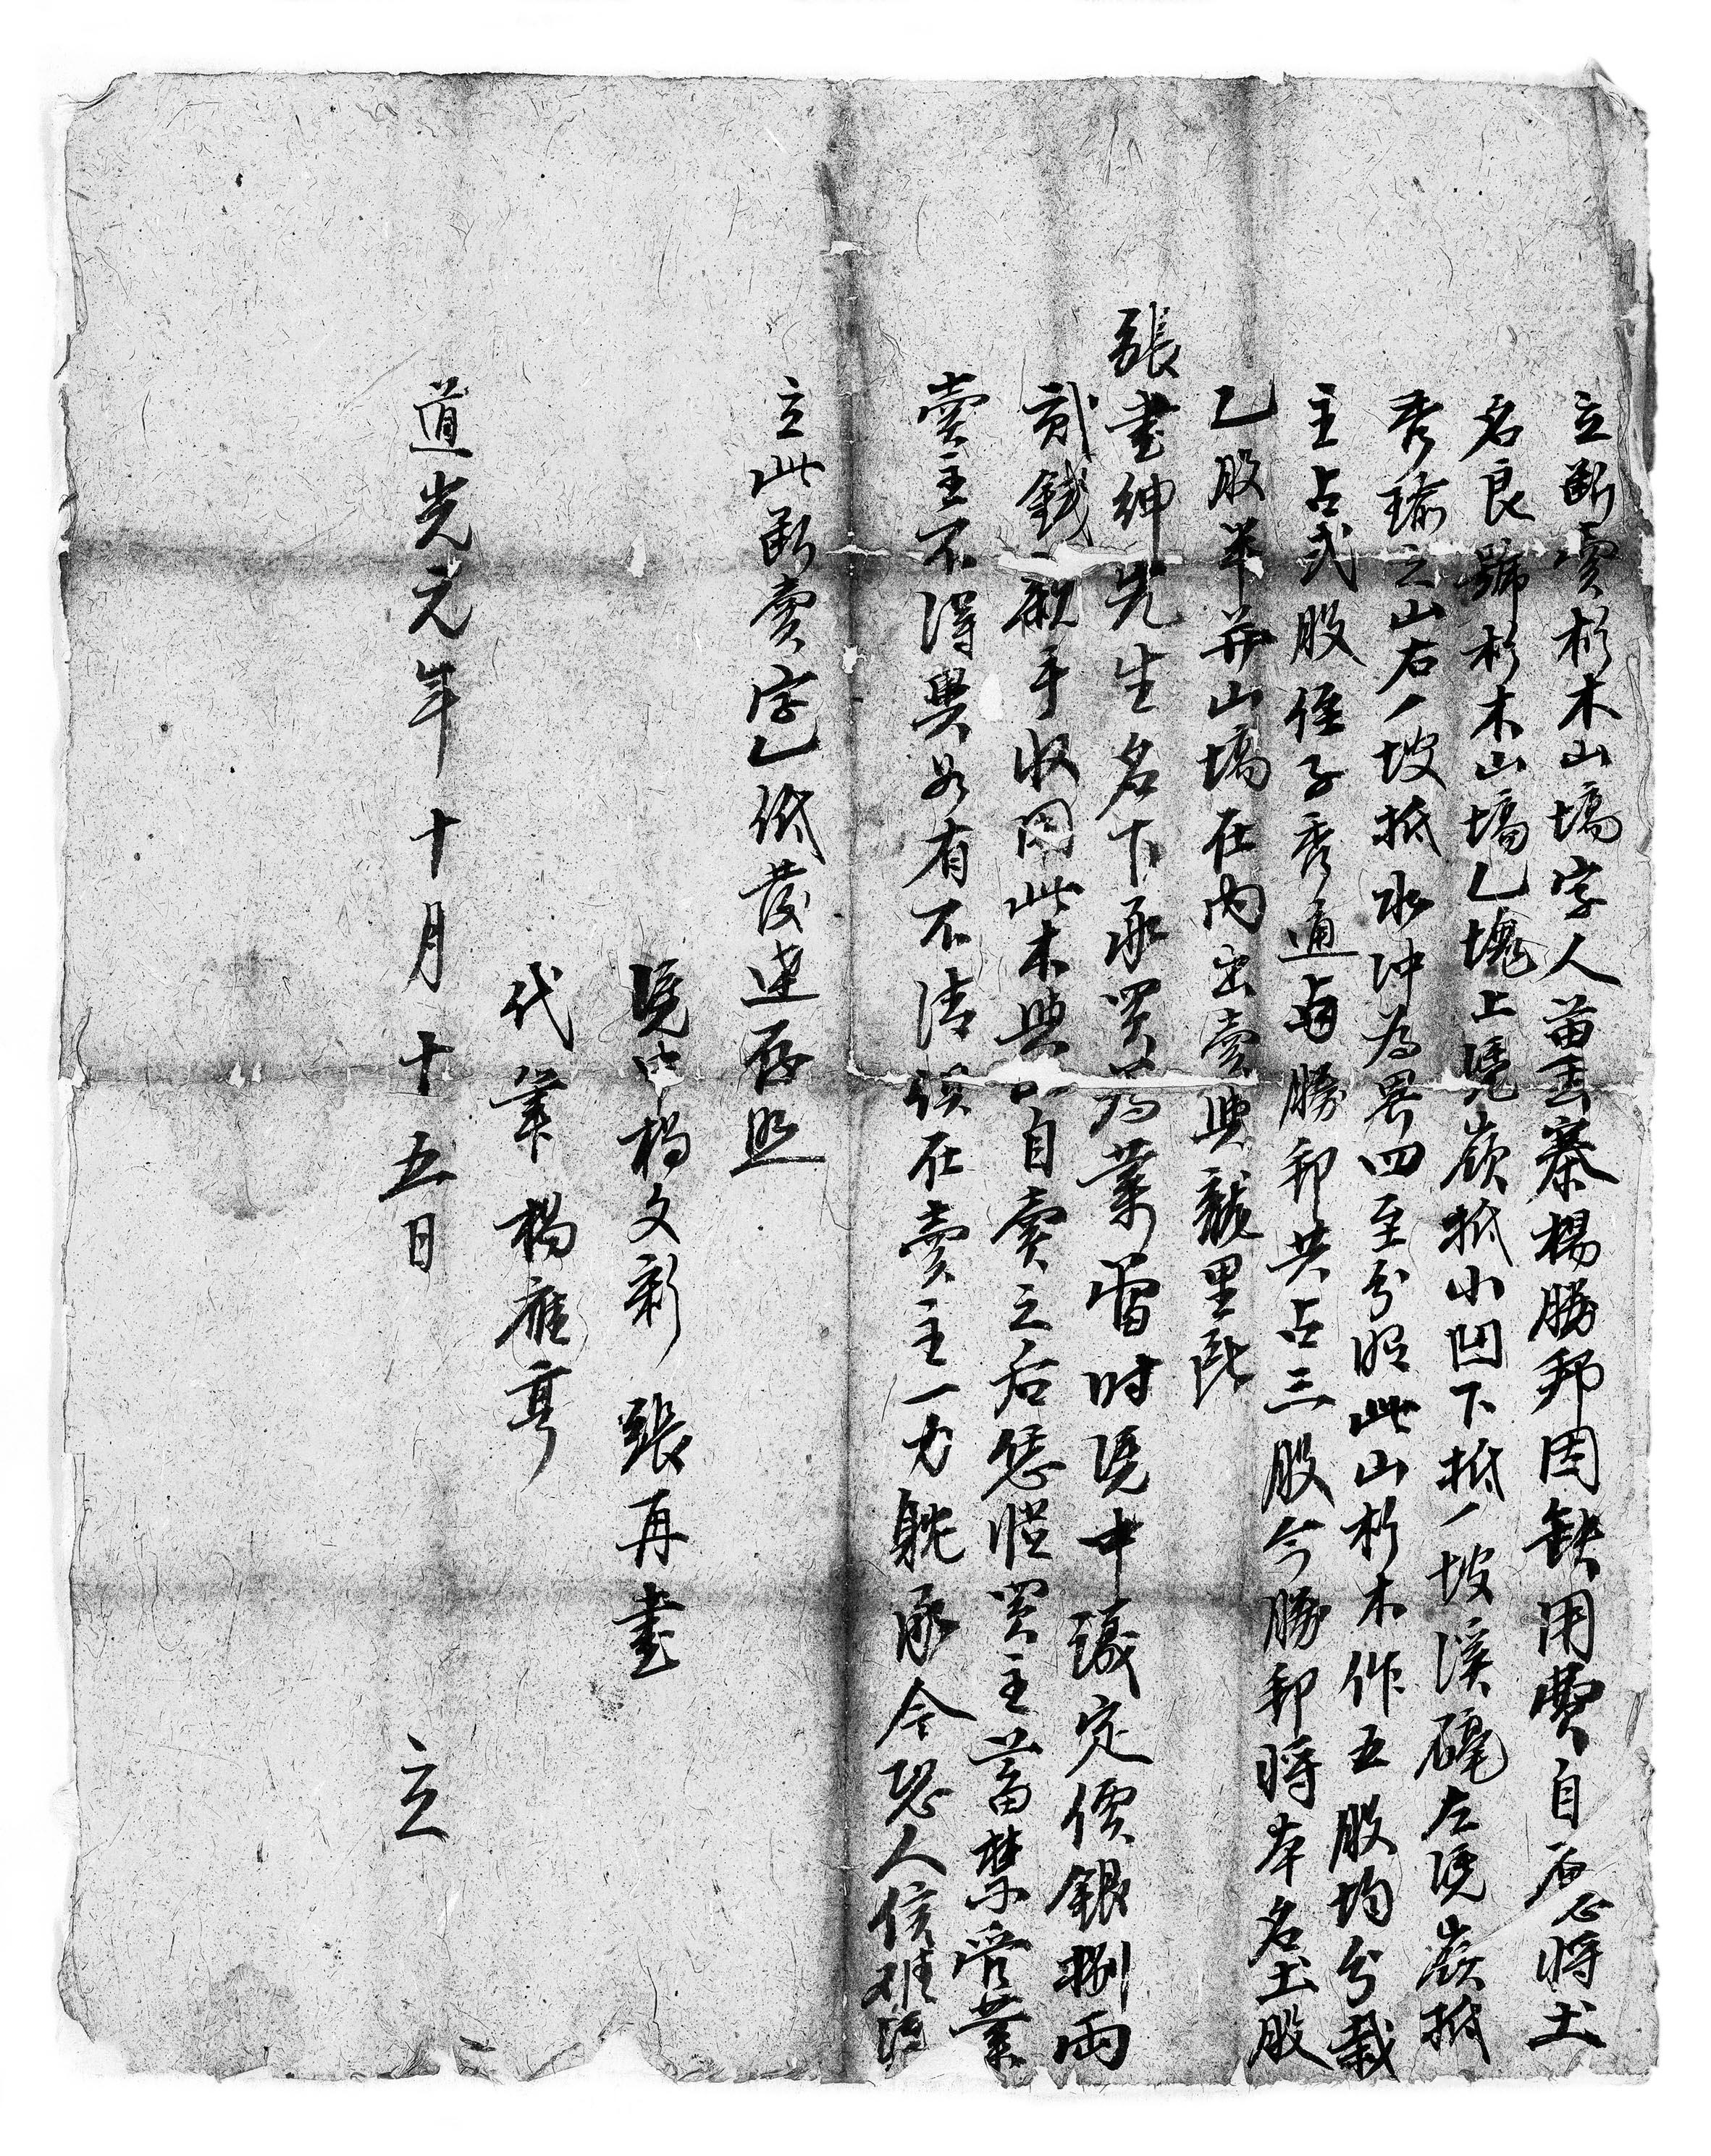 立断賣杉木山塲字人苗舌寨楊勝邦因缺用費自愿將土
名良號杉木山塲乙塊上凴嶺抵小凹下抵一坡溪礮左凴嶺抵
秀瑜之山右一坡抵水冲為界四至分明此山杉木作五股均分栽
主占弍股侄子秀通与勝邦共占三股今勝邦將本名土股
乙股半并山塲在內出賣與龍里所
張書紳先生名下承買為業當时凴中議定價銀捌兩
貳錢親手收囘此木與山自賣之后恁從買主蓄禁管業
賣主不得異如有不清俱在賣主一力躭承今恐人信难憑
立此断賣字乙低發達存照
凴中楊文彩 張再書
代筆楊應亨
道光元年十月十五日 立